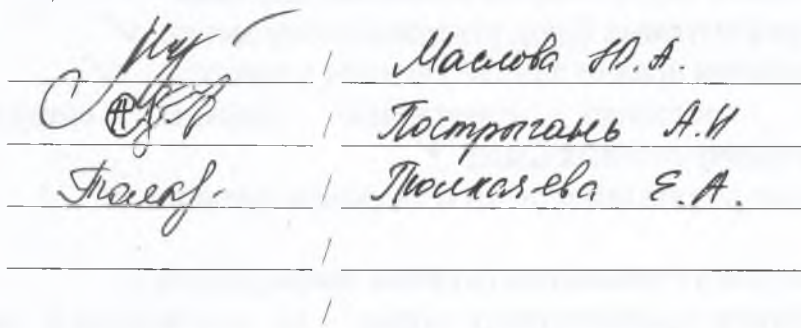 / Маслова Ю.А.
/ Пострыгань А.И
/ Толкачева Е.А.
/
/